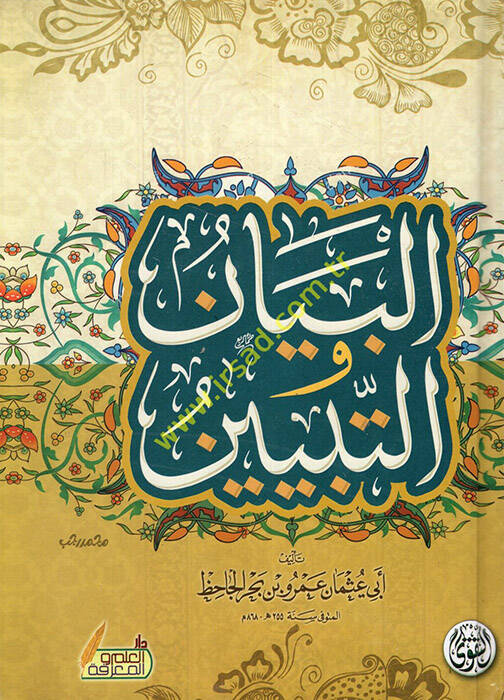 البيان
و
التبيين
www.irsad.com.tr
تأليف
أبي عثمان عمرو بن بحر الجاحظ
المتوفى سنة ٢٥٥هـ - ٨٦٨م
دار
العلم و
المعرفة
التقوى